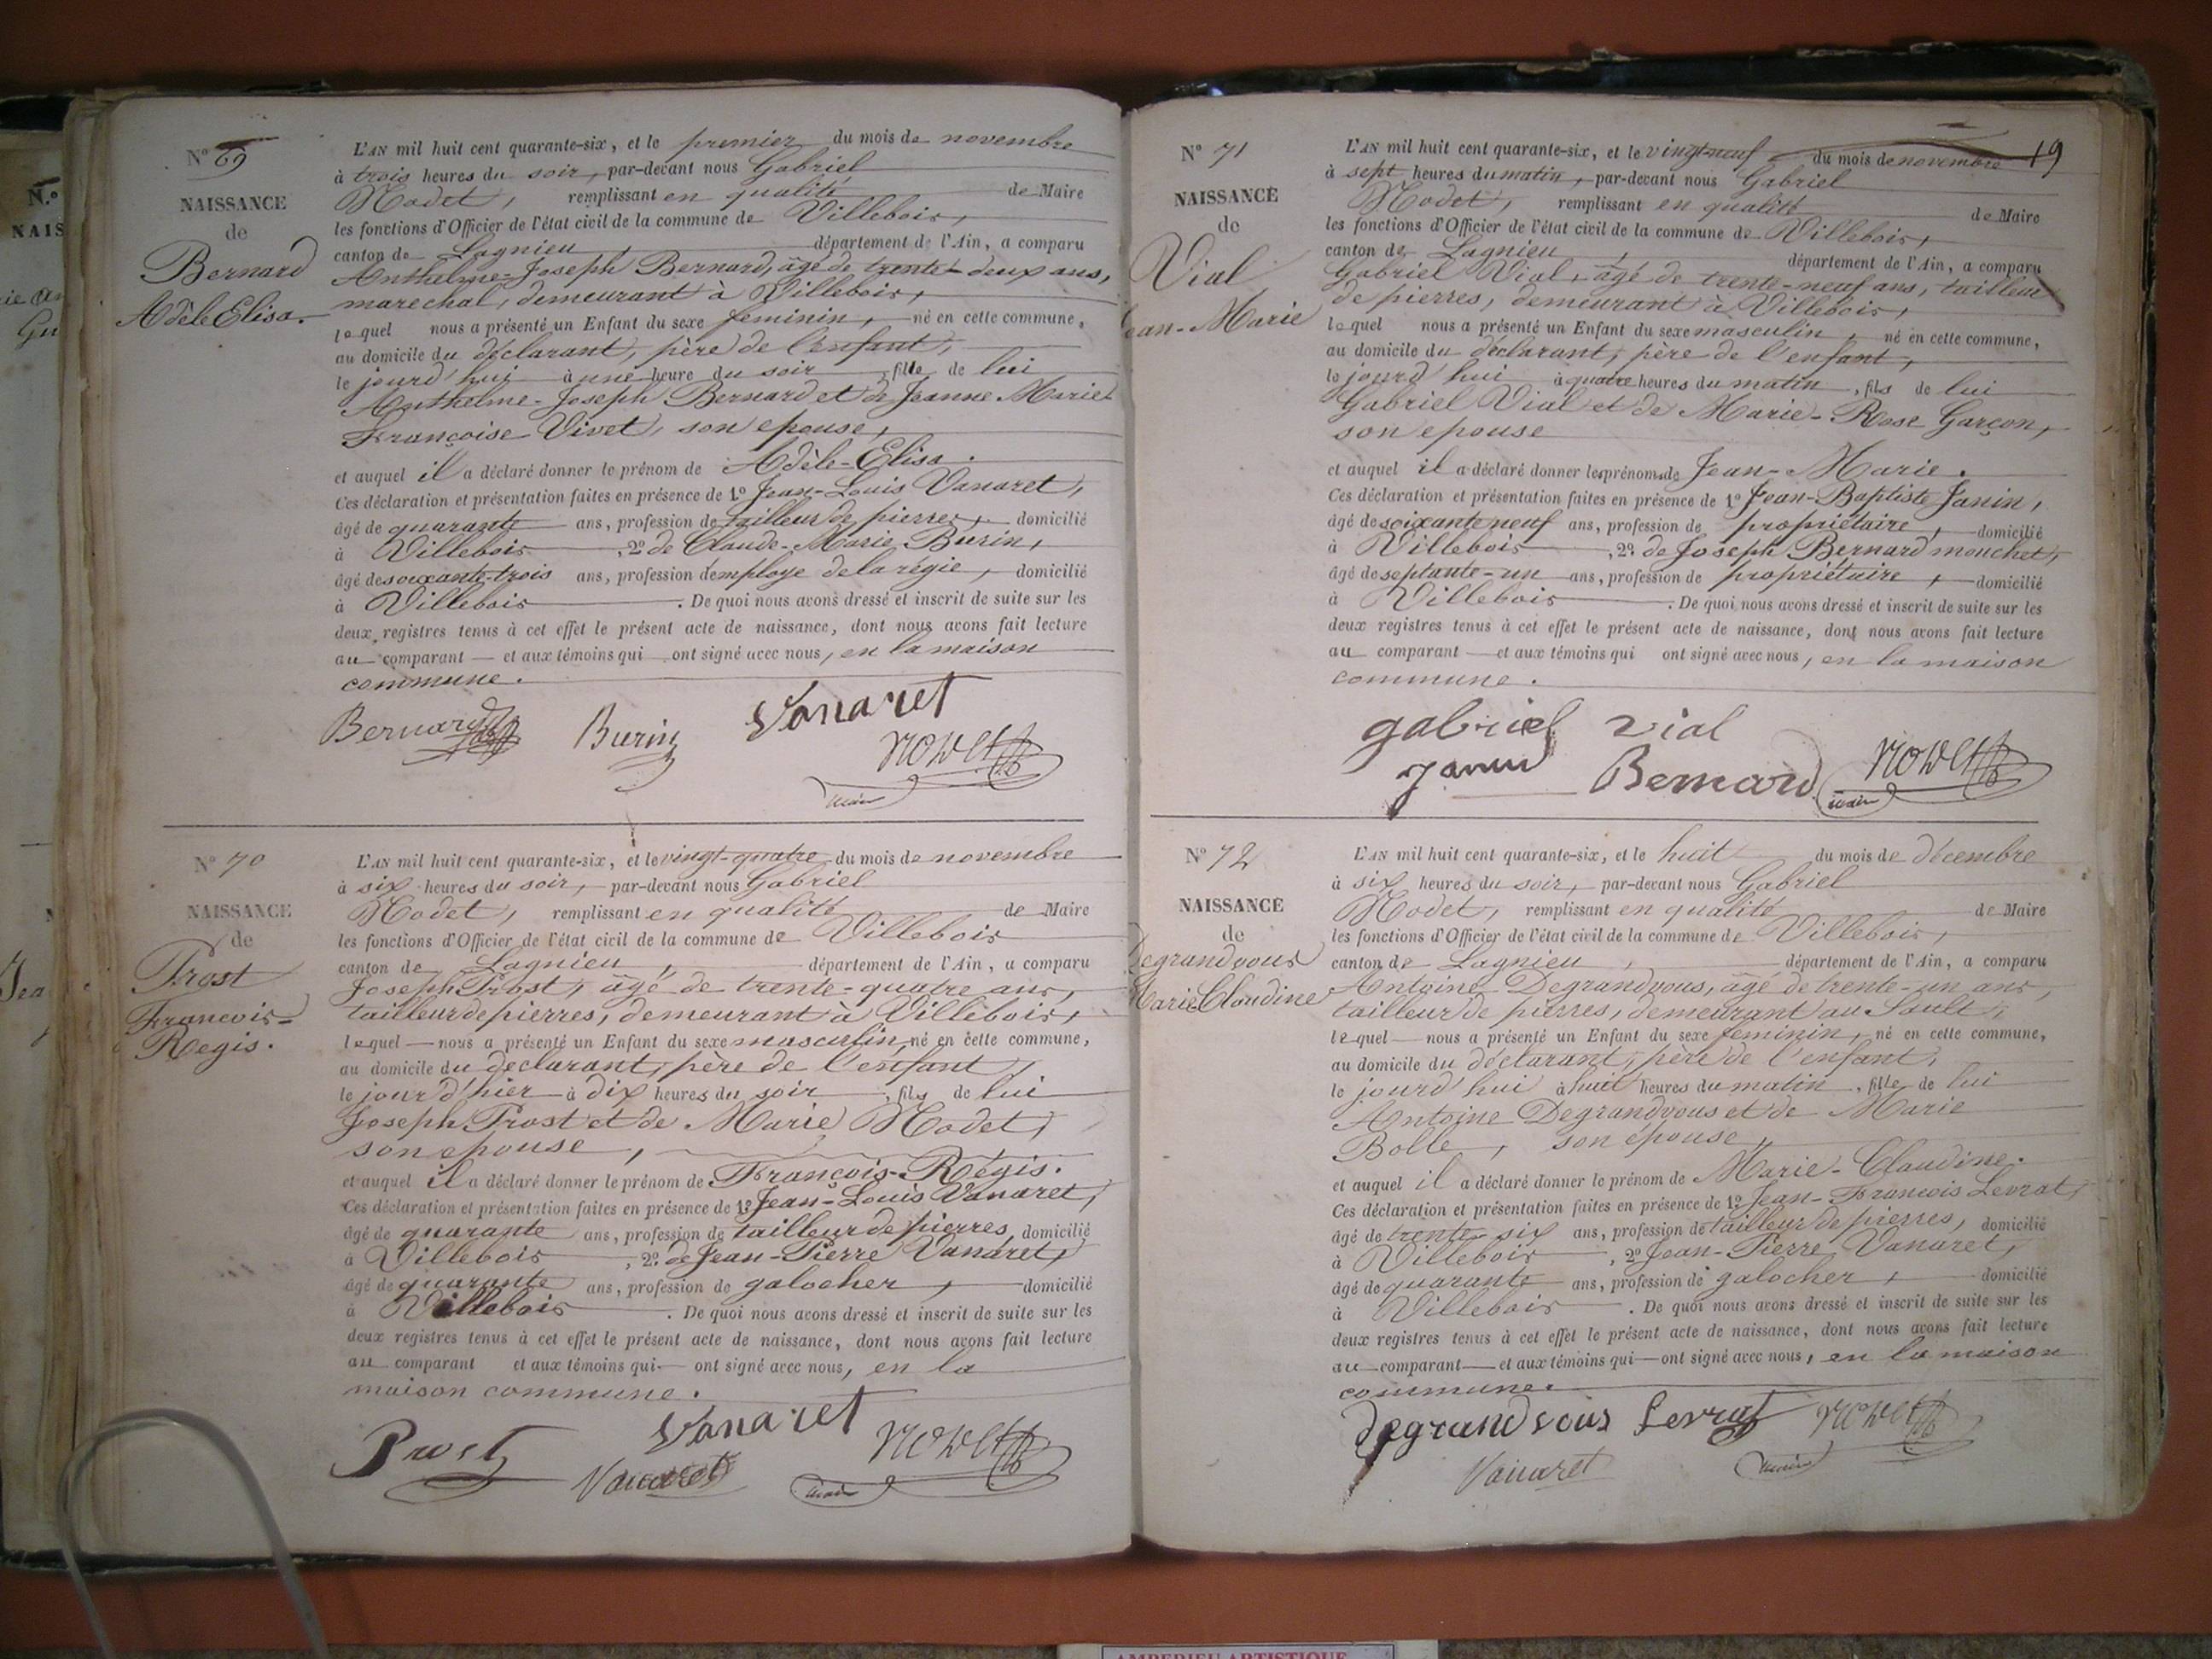 Nº 69
NAISSANCE
de
Bernard
Adèle Elisa.
L'AN mil huit cent quarante-six, et le premier du mois de novembre
à trois heures du soir, par-devant nous Gabriel
Nodet, remplissant en qualité de Maire
les fonctions d'Officier de l'état civil de la commune de Villebois,
canton de Lagnieu, département de l'Ain, a comparu
Anthelme-Joseph Bernard, âgé de trente-deux ans,
marechal, demeurant à Villebois,
lequel nous a présenté un Enfant du sexe feminin, né en cette commune,
au domicile du déclarant, père de l'enfant,
le jourd'hui à une heure du soir, fille de lui
Anthelme-Joseph Bernard et de Jeanne Mariet
Françoise Vivet, son epouse,
et auquel il a déclaré donner le prénom de Adèle-Elisa.
Ces déclaration et présentation faites en présence de 1º Jean-Louis Vanaret,
âgé de quarante ans, profession de tailleur de pierres, domicilié
à Villebois, 2º de Claude-Marie Burin,
âgé de soixante-trois ans, profession d'employe de la régie, domicilié
à Villebois. De quoi nous avons dressé et inscrit de suite sur les
deux registres tenus à cet effet le présent acte de naissance, dont nous avons fait lecture
au comparant et aux témoins qui ont signé avec nous, en la maison
commune.
Bernard Burin Vanaret
Nodet
maire
Nº 70
NAISSANCE
de
Prost
Francois-
Regis.
L'AN mil huit cent quarante-six, et le vingt-quatre du mois de novembre
à six heures du soir, par-devant nous Gabriel
Nodet, remplissant en qualité de Maire
les fonctions d'Officier de l'état civil de la commune de Villebois
canton de Lagnieu, département de l'Ain, a comparu
Joseph Prost, âgé de trente-quatre ans,
tailleur de pierres, demeurant à Villebois,
lequel nous a présenté un Enfant du sexe masculin, né en cette commune,
au domicile du declarant, père de l'enfant,
le jour d'hier à dix heures du soir, fils de lui
Joseph Prost et de Marie Nodet,
son epouse,
et auquel il a déclaré donner le prénom de François-Régis.
Ces déclaration et présentation faites en présence de 1º Jean-Louis Vanaret,
âgé de quarante ans, profession de tailleur de pierres, domicilié
à Villebois, 2º de Jean-Pierre Vanaret,
âgé de quarante ans, profession de galocher, domicilié
à Villebois. De quoi nous avons dressé et inscrit de suite sur les
deux registres tenus à cet effet le présent acte de naissance, dont nous avons fait lecture
au comparant et aux témoins qui ont signé avec nous, en la
maison commune.
Prost Vanaret Nodet
Vanaret maire
19
Nº 71
NAISSANCE
de
Vial
Jean-Marie
L'AN mil huit cent quarante-six, et le vingt-neuf du mois de novembre
à sept heures du matin, par-devant nous Gabriel
Nodet, remplissant en qualité de Maire
les fonctions d'Officier de l'état civil de la commune de Villebois,
canton de Lagnieu, département de l'Ain, a comparu
Gabriel Vial, âgé de trente-neuf ans, tailleur
de pierres, demeurant à Villebois,
lequel nous a présenté un Enfant du sexe masculin, né en cette commune,
au domicile du déclarant, père de l'enfant,
le jourd'hui à quatre heures du matin, fils de lui
Gabriel Vial et de Marie-Rose Garçon,
son epouse
et auquel il a déclaré donner les prénoms de Jean-Marie.
Ces déclaration et présentation faites en présence de 1º Jean-Baptiste Janin,
âgé de soixante neuf ans, profession de propriétaire, domicilié
à Villebois, 2º de Joseph Bernard mouchet,
âgé de septante-un ans, profession de propriétaire, domicilié
à Villebois. De quoi nous avons dressé et inscrit de suite sur les
deux registres tenus à cet effet le présent acte de naissance, dont nous avons fait lecture
au comparant et aux témoins qui ont signé avec nous, en la maison
commune.
gabriel vial
Janin Bernard Nodet
maire
Nº 72
NAISSANCE
de
Degrandvous
Marie Claudine
L'AN mil huit cent quarante-six, et le huit du mois de décembre
à six heures du soir, par-devant nous Gabriel
Nodet, remplissant en qualité de Maire
les fonctions d'Officier de l'état civil de la commune de Villebois,
canton de Lagnieu, département de l'Ain, a comparu
Antoine Degrandvous, âgé de trente-un ans,
tailleur de pierres, demeurant au Sault,
lequel nous a présenté un Enfant du sexe feminin, né en cette commune,
au domicile du déclarant, père de l'enfant,
le jourd'hui à huit heures du matin, fille de lui
Antoine Degrandvous et de Marie
Bolle, son épouse,
et auquel il a déclaré donner le prénom de Marie-Claudine.
Ces déclaration et présentation faites en présence de 1º Jean-Francois Levrat,
âgé de trente-six ans, profession de tailleur de pierres, domicilié
à Villebois, 2º Jean-Pierre Vanaret,
âgé de quarante ans, profession de galocher, domicilié
à Villebois. De quoi nous avons dressé et inscrit de suite sur les
deux registres tenus à cet effet le présent acte de naissance, dont nous avons fait lecture
au comparant et aux témoins qui ont signé avec nous, en la maison
commune.
degrandvous Levrat Nodet
Vanaret maire